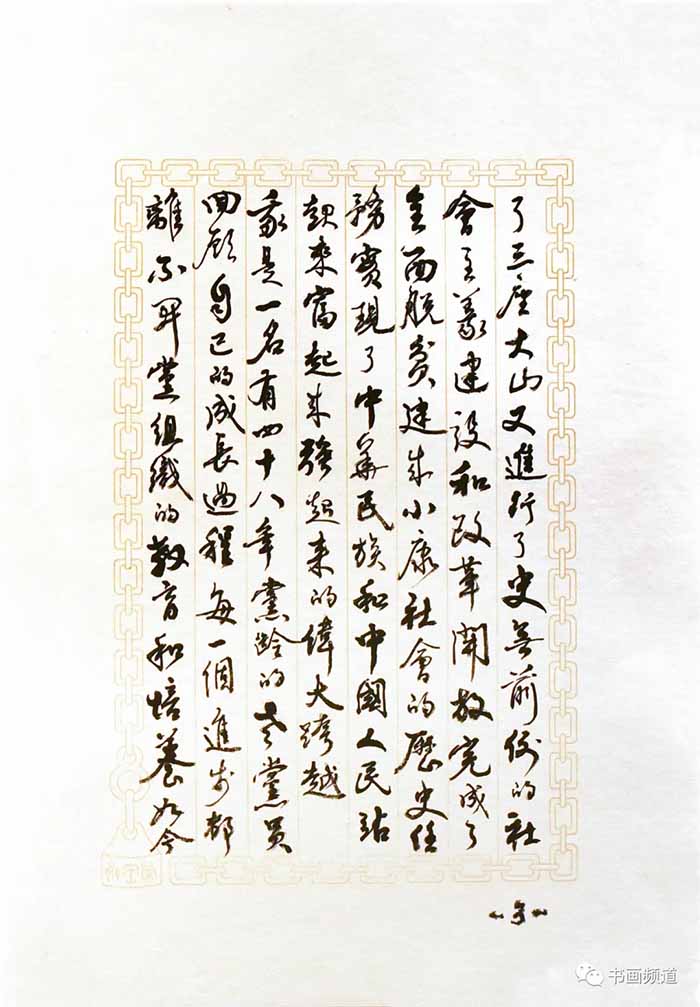 了三座大山又進行了史無前例的社
會主義建設和改革開放完成了
全面脱貧建成小康社會的歷史任
務實現了中華民族和中國人民站
起來富起來強起來的偉大跨越
我是一名有四十八年黨龄的老黨員
回顾自己的成長過程每一個進步都
離不開黨組織的教育和培養如今
书画频道